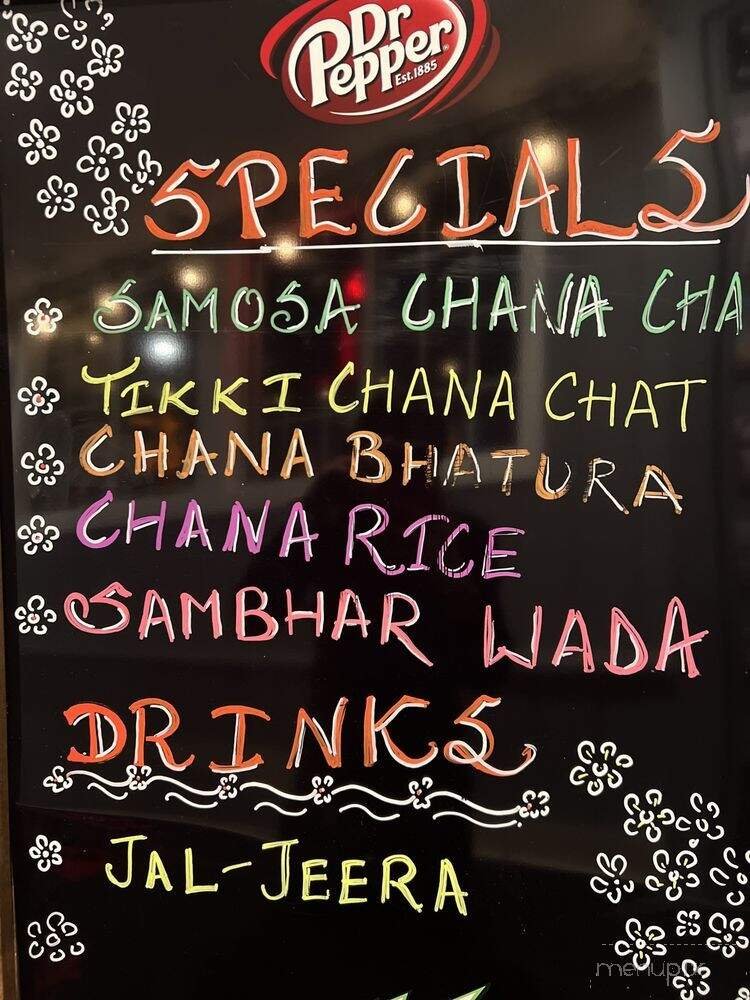 Dr
Pepper
Est.1885
SPECIALS
SAMOSA CHANA CHA
TIKKI CHANA CHAT
CHANA BHATURA
CHANA RICE
SAMBHAR WADA
DRINKS
JAL-JEERA